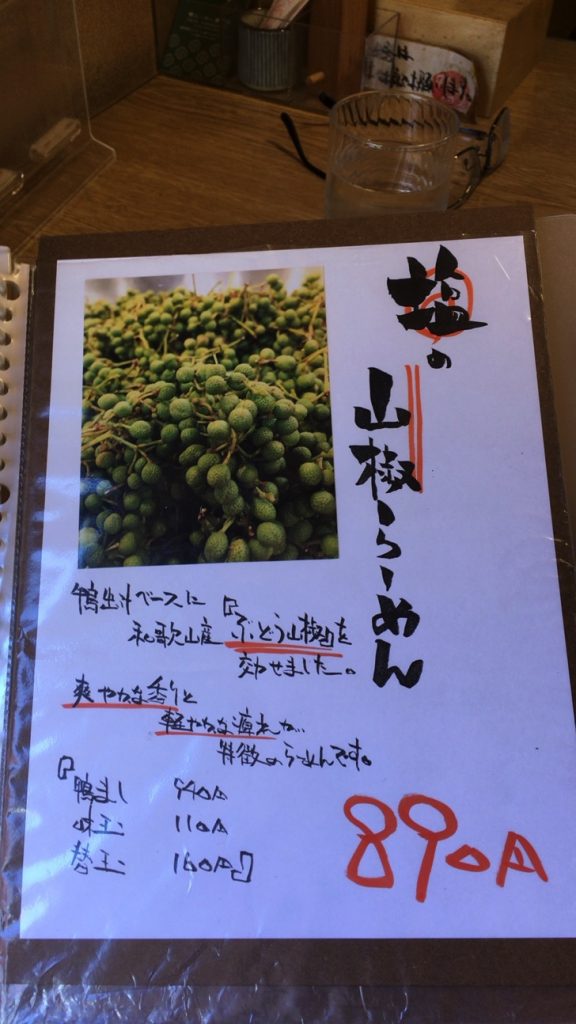 塩の
山椒らーめん
鴨出汁ベースに
和歌山産『ぶどう山椒』を
交わせました。
爽やかな香りと
軽やかな痺れが
特徴のらーめんです。
『鴨まし 940円
味玉 110円
替玉 160円』
890円